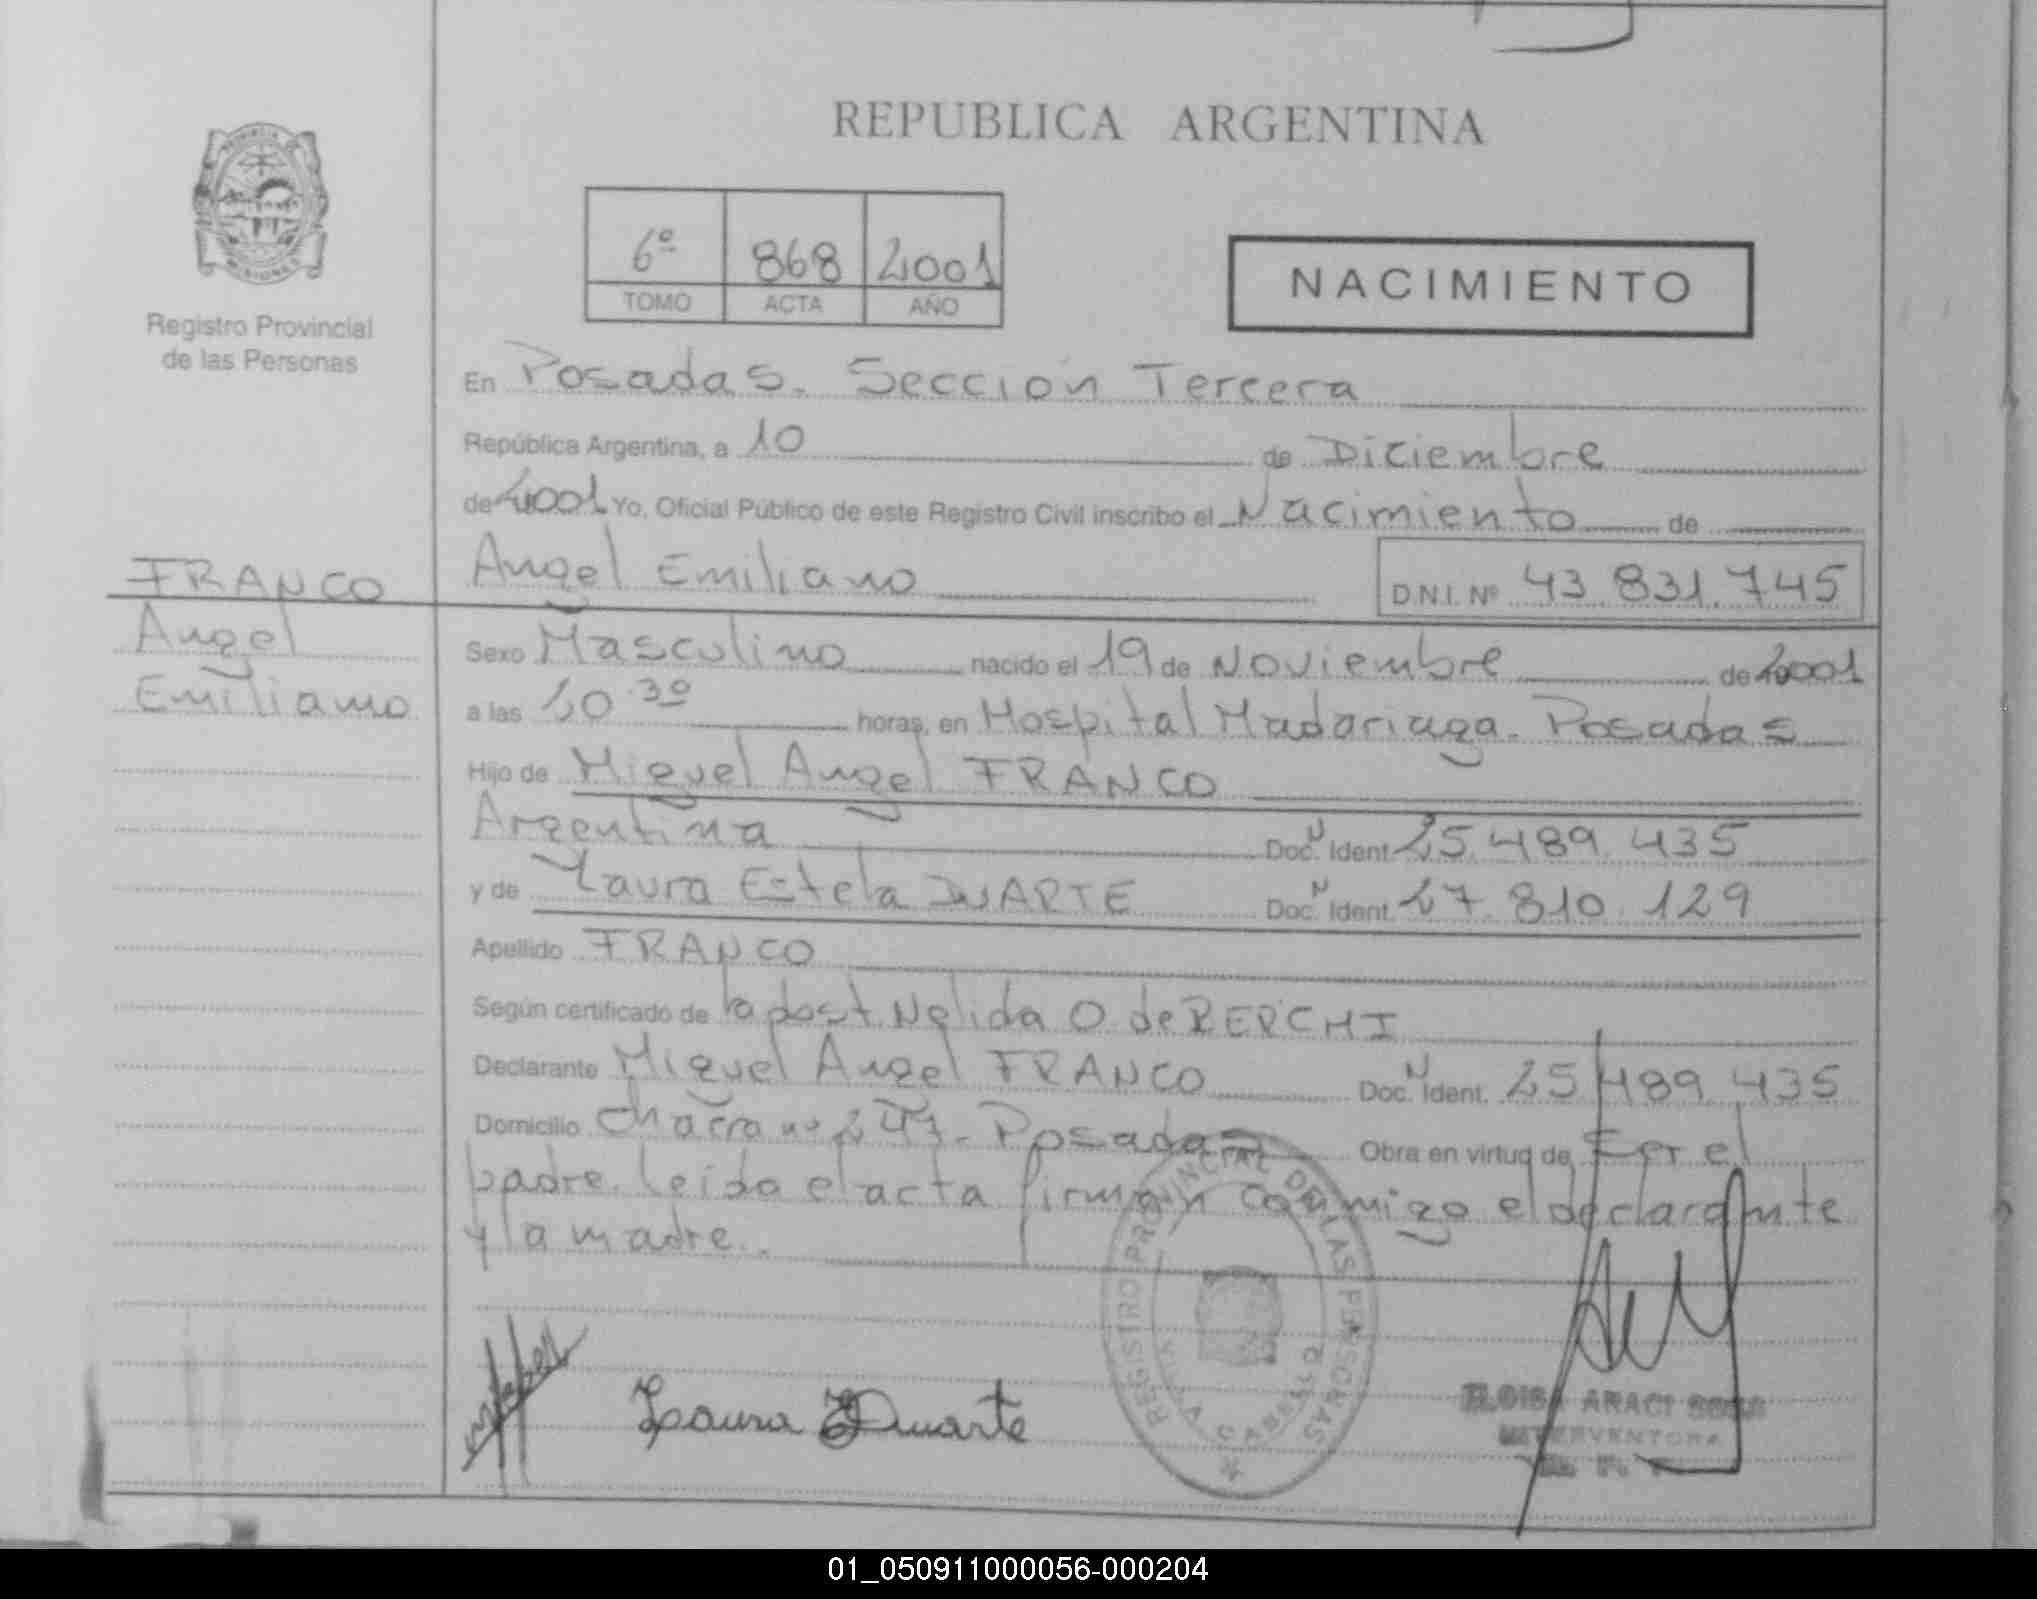 REPUBLICA ARGENTINA
PROVINCIA DE MISIONES
Registro Provincial
de las Personas
6º 868 2001
TOMO ACTA AÑO
NACIMIENTO
En Posadas. Sección Tercera
República Argentina, a 10 de Diciembre
de 2001 Yo, Oficial Público de este Registro Civil inscribo el Nacimiento de
Angel Emiliano D.N.I. Nº 43.831.745
FRANCO
Angel
Emiliano
Sexo Masculino nacido el 19 de Noviembre de 2001
a las 20.30 horas, en Hospital Madariaga. Posadas
Hijo de Miguel Angel FRANCO
Argentina Doc. N Ident. 25.489.435
y de Laura Estela DUARTE Doc. N Ident. 27.810.129
Apellido FRANCO
Según certificado de la obst. Nelida O. de BERCHI
Declarante Miguel Angel FRANCO Doc. N Ident. 25.489.435
Domicilio Chacra nº 247. Posadas Obra en virtud de Ser el
padre. Leida el acta firman conmigo el declarante
y la madre.
Laura E Duarte
REGISTRO PROVINCIAL DE LAS PERSONAS
ELOISA ARACI SOSA
INTERVENTORA
01_050911000056-000204